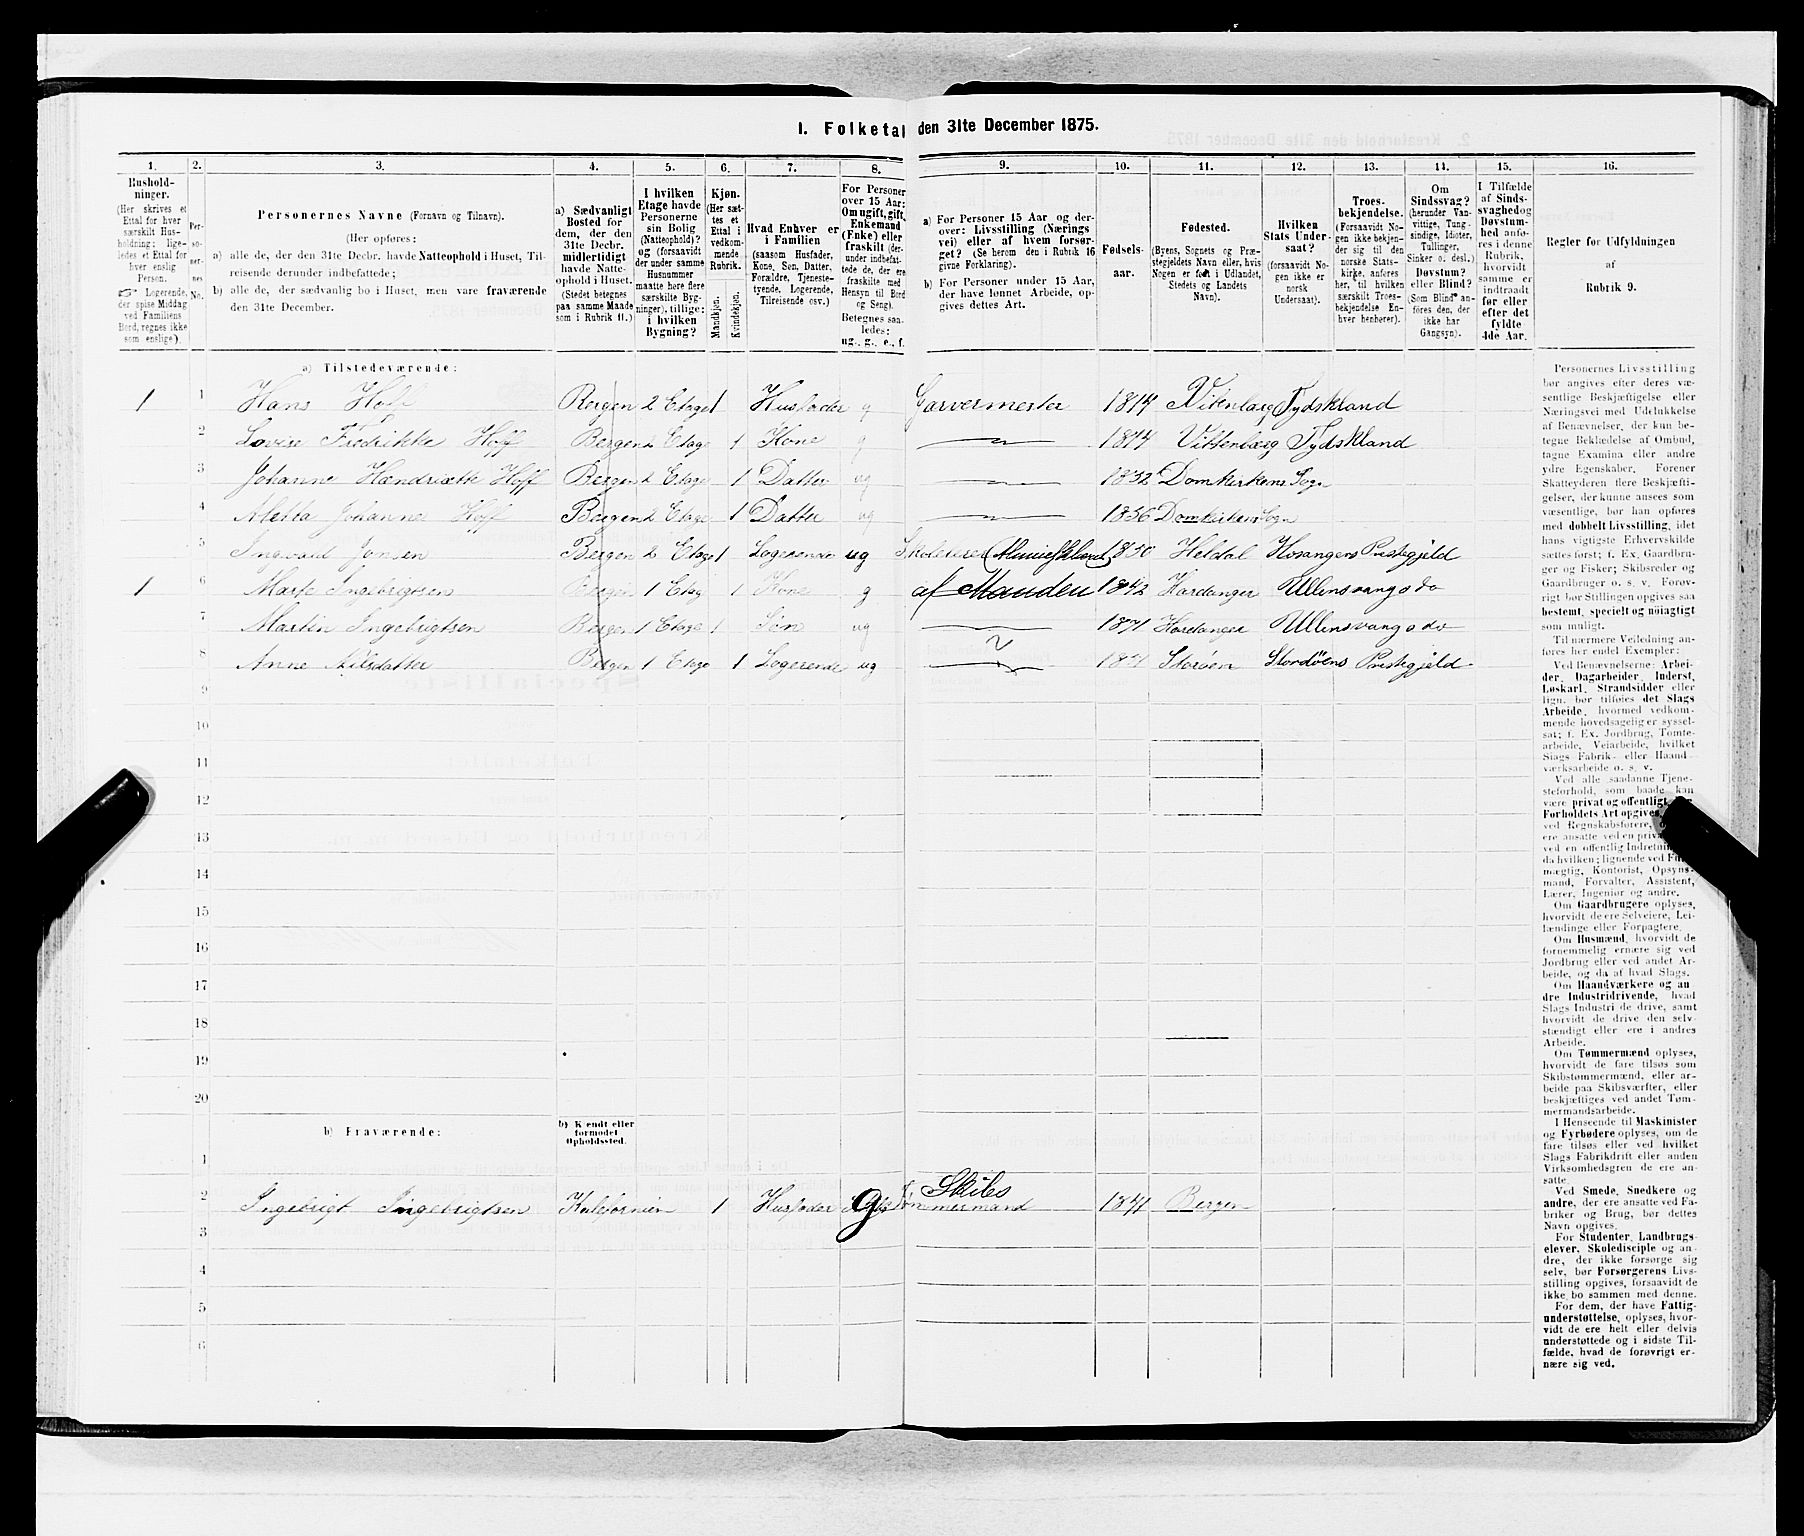 I. Folketal den 31te December 1875.
1. 2. 3. 4. 5. 6. 7. 8. 9. 10. 11. 12. 13. 14. 15. 16.
Husholdninger.
(Her skrives et
Ettal for hver
særskilt Husholdning;
ligeledes et Ettal for
hver enslig
Person.
☞ Logerende,
der spise Middag
ved Familiens
Bord, regnes ikke
som enslige).
Personernes No.
Personernes Navne (Fornavn og Tilnavn).
(Her opføres:
a) alle de, der den 31te Decbr. havde Natteophold i Huset, Tilreisende derunder indbefattede;
b) alle de, der sædvanlig bo i Huset, men vare fraværende
den 31te December.
a) Sædvanligt
Bosted for
dem, der den
31te Decbr.
midlertidigt
havde Natteophold i Huset.
(Stedet betegnes
paa samme Maade
som i Rubrik 11.)
I hvilken
Etage havde
Personerne
sin Bolig
(Natteophold)?
og (forsaavidt
der under samme
Husnummer
maatte høre flere
særskilte Bygninger), tillige:
i hvilken
Bygning?
Kjøn.
(Her sættes et
Ettal i
vedkommende
Rubrik.
Mandkjøn.
Kvindekjøn.
Hvad Enhver er
i Familien
(saasom Husfader,
Kone, Søn, Datter,
Forældre, Tjenestetyende, Logerende,
Tilreisende osv.)
For Personer
over 15 Aar:
Om ugift, gift,
Enkemand
(Enke) eller
fraskilt (derunder indbefattede de, der ere
fraskilte med
Hensyn til Bord
og Seng).
Betegnes saaledes:
ug., g., e., f.
a) For Personer 15 Aar og derover: Livsstilling (Næringsvei) eller af hvem forsørget? (Se herom den i Rubrik 16
givne Forklaring).
b) For Personer under 15 Aar,
der have lønnet Arbeide, opgives dettes Art.
Fødselsaar.
Fødested.
(Byens, Sognets og Præstegjeldets Navn eller, hvis
Nogen er født i Udlandet,
Stedets og Landets
Navn).
Hvilken
Stats Undersaat?
(forsaavidt Nogen ikke er
norsk
Undersaat).
Troesbekjendelse.
(Forsaavidt Nogen ikke bekjender sig til den
norske Statskirke, anføres
her, til hvilken
særskilt Troesbekjendelse Enhver henhører).
Om
Sindssvag?
(herunder Vanvittige, Tungsindige, Idioter,
Tullinger,
Sinker o. desl.)
Døvstum?
eller Blind?
(Som Blind anføres den, der
ikke har
Gangsyn).
I Tilfælde
af Sindssvaghed og
Døvstumhed anføres i denne
Rubrik,
hvorvidt
samme er
indtraadt
før eller
efter det
fyldte
4de Aar.
Regler for Udfyldningen
af
Rubrik 9.
a) Tilstedeværende:
1 1 Hans Hoff Bergen 2 Etage 1 Husfader g Garvermester 1814 Vitenbærg Tydskland
2 Lovise Fredrikke Hoff Bergen 2 Etage 1 Kone g 1814 Vittenbærg Tydskland
3 Johanne Hendriætte Hoff Bergen 2 Etage 1 Datter ug 1852 Domkirkens Sogn
4 Metta Johanne Hoff Bergen 2 Etage 1 Datter ug 1856 Domkirkens Sogn
5 Ingvald Jonsen Bergen 2 Etage 1 Logerende ug 1850 Heldal Hosangers Prestegjeld
1 6 Marte Ingebrigtsen Bergen 1 Etag 1 Kone g af Manden 1842 Hardanger Ullensvangs do
7 Martin Ingebrigtsen Bergen 1 Etage 1 Søn ug 1871 Hardanger Ullensvangs do
8 Anne Nilsdatter Bergen 1 Etage 1 Logerende ug Storøen Stordøens Prestegjeld
9
10
11
12
13
14
15
16
17
18
19
20
b) Fraværende:
b) Kendt eller
formodet
Opholdssted.
1
2 Ingebrigt Ingebrigtsen Kalefornien 1 Husfader g Skibs Tømmermand Bergen
3
4
5
6
Personernes Livsstilling
bør angives efter deres væsentlige Beskjæftigelse eller
Næringsvei med Udelukkelse
af Benævnelser, der kun betegne Beklædelse af Ombud,
tagne Examina eller andre
ydre Egenskaber. Forener
Skatteyderen flere Beskjæftigelser, der kunne ansees som
væsentlige, bør han opføres
med dobbelt Livsstilling, idet
hans vigtigste Erhvervskilde
sættes først; f. Ex. Gaardbruger og Fisker; Skibsreder og
Gaardbruger o. s. v. Forøvrigt bør Stillingen opgives saa
bestemt, specielt og nøiagtigt
som muligt.
Til nærmere Veiledning anføres her endel Exempler:
Ved Benævnelserne: Arbeider, Dagarbeider, Inderst,
Løskarl, Strandsidder eller
lign. bør tilføies det Slags
Arbeide, hvormed vedkommende hovedsagelig er sysselsat; f. Ex. Jordbrug, Tomtearbeide, Veiarbeide, hvilket
Slags Fabrik- eller Haandværksarbeide o. s. v.
Ved alle saadanne Tjenesteforhold, som baade kan
være privat og offentligt,
Forholdets Art opgives,
ved Regnskabsførere,
ere ansatte ved en
ved en offentlig
da hvilken; lignende ved
mægtig, Kontorist, Opsynsmand, Forvalter, Assistent,
Lærer, Ingeniør og andre.
Om Gaardbrugere oplyses,
hvorvidt de ere Selveiere, Leilændinge eller Forpagtere.
Om Husmænd, hvorvidt de
fornemmelig ernære sig ved
Jordbrug eller ved andet Arbeide, og da af hvad Slags.
Om Haandværkere og andre Industridrivende, hvad
Slags Industri de drive, samt
hvorvidt de drive den selvstændigt eller ere i andres
Arbeide.
Om Tømmermænd oplyses,
hvorvidt de fare tilsøs som
Skibstømmermænd, eller arbeide paa Skibsværfter, eller
beskjæftiges ved andet Tømmermandsarbeide.
I Henseende til Maskinister
og Fyrbødere oplyses, om de
fare tilsøs eller ved hvilket
Slags Fabrikdrift eller anden
Virksomhedsgren de ere ansatte.
Ved Smede, Snedkere og
andre, der ere ansatte ved Fabriker og Brug, bør dettes
Navn opgives.
For Studenter, Landbrugselever, Skoledisciple og andre, der ikke forsørge sig
selv, bør Forsørgerens Livsstilling opgives, forsaavidt de
ikke bo sammen med denne.
For dem, der have Fattigunderstøttelse, oplyses, hvorvidt de ere helt eller delvis
understøttede og i sidste Tilfælde, hvad de forøvrigt ernære sig ved.